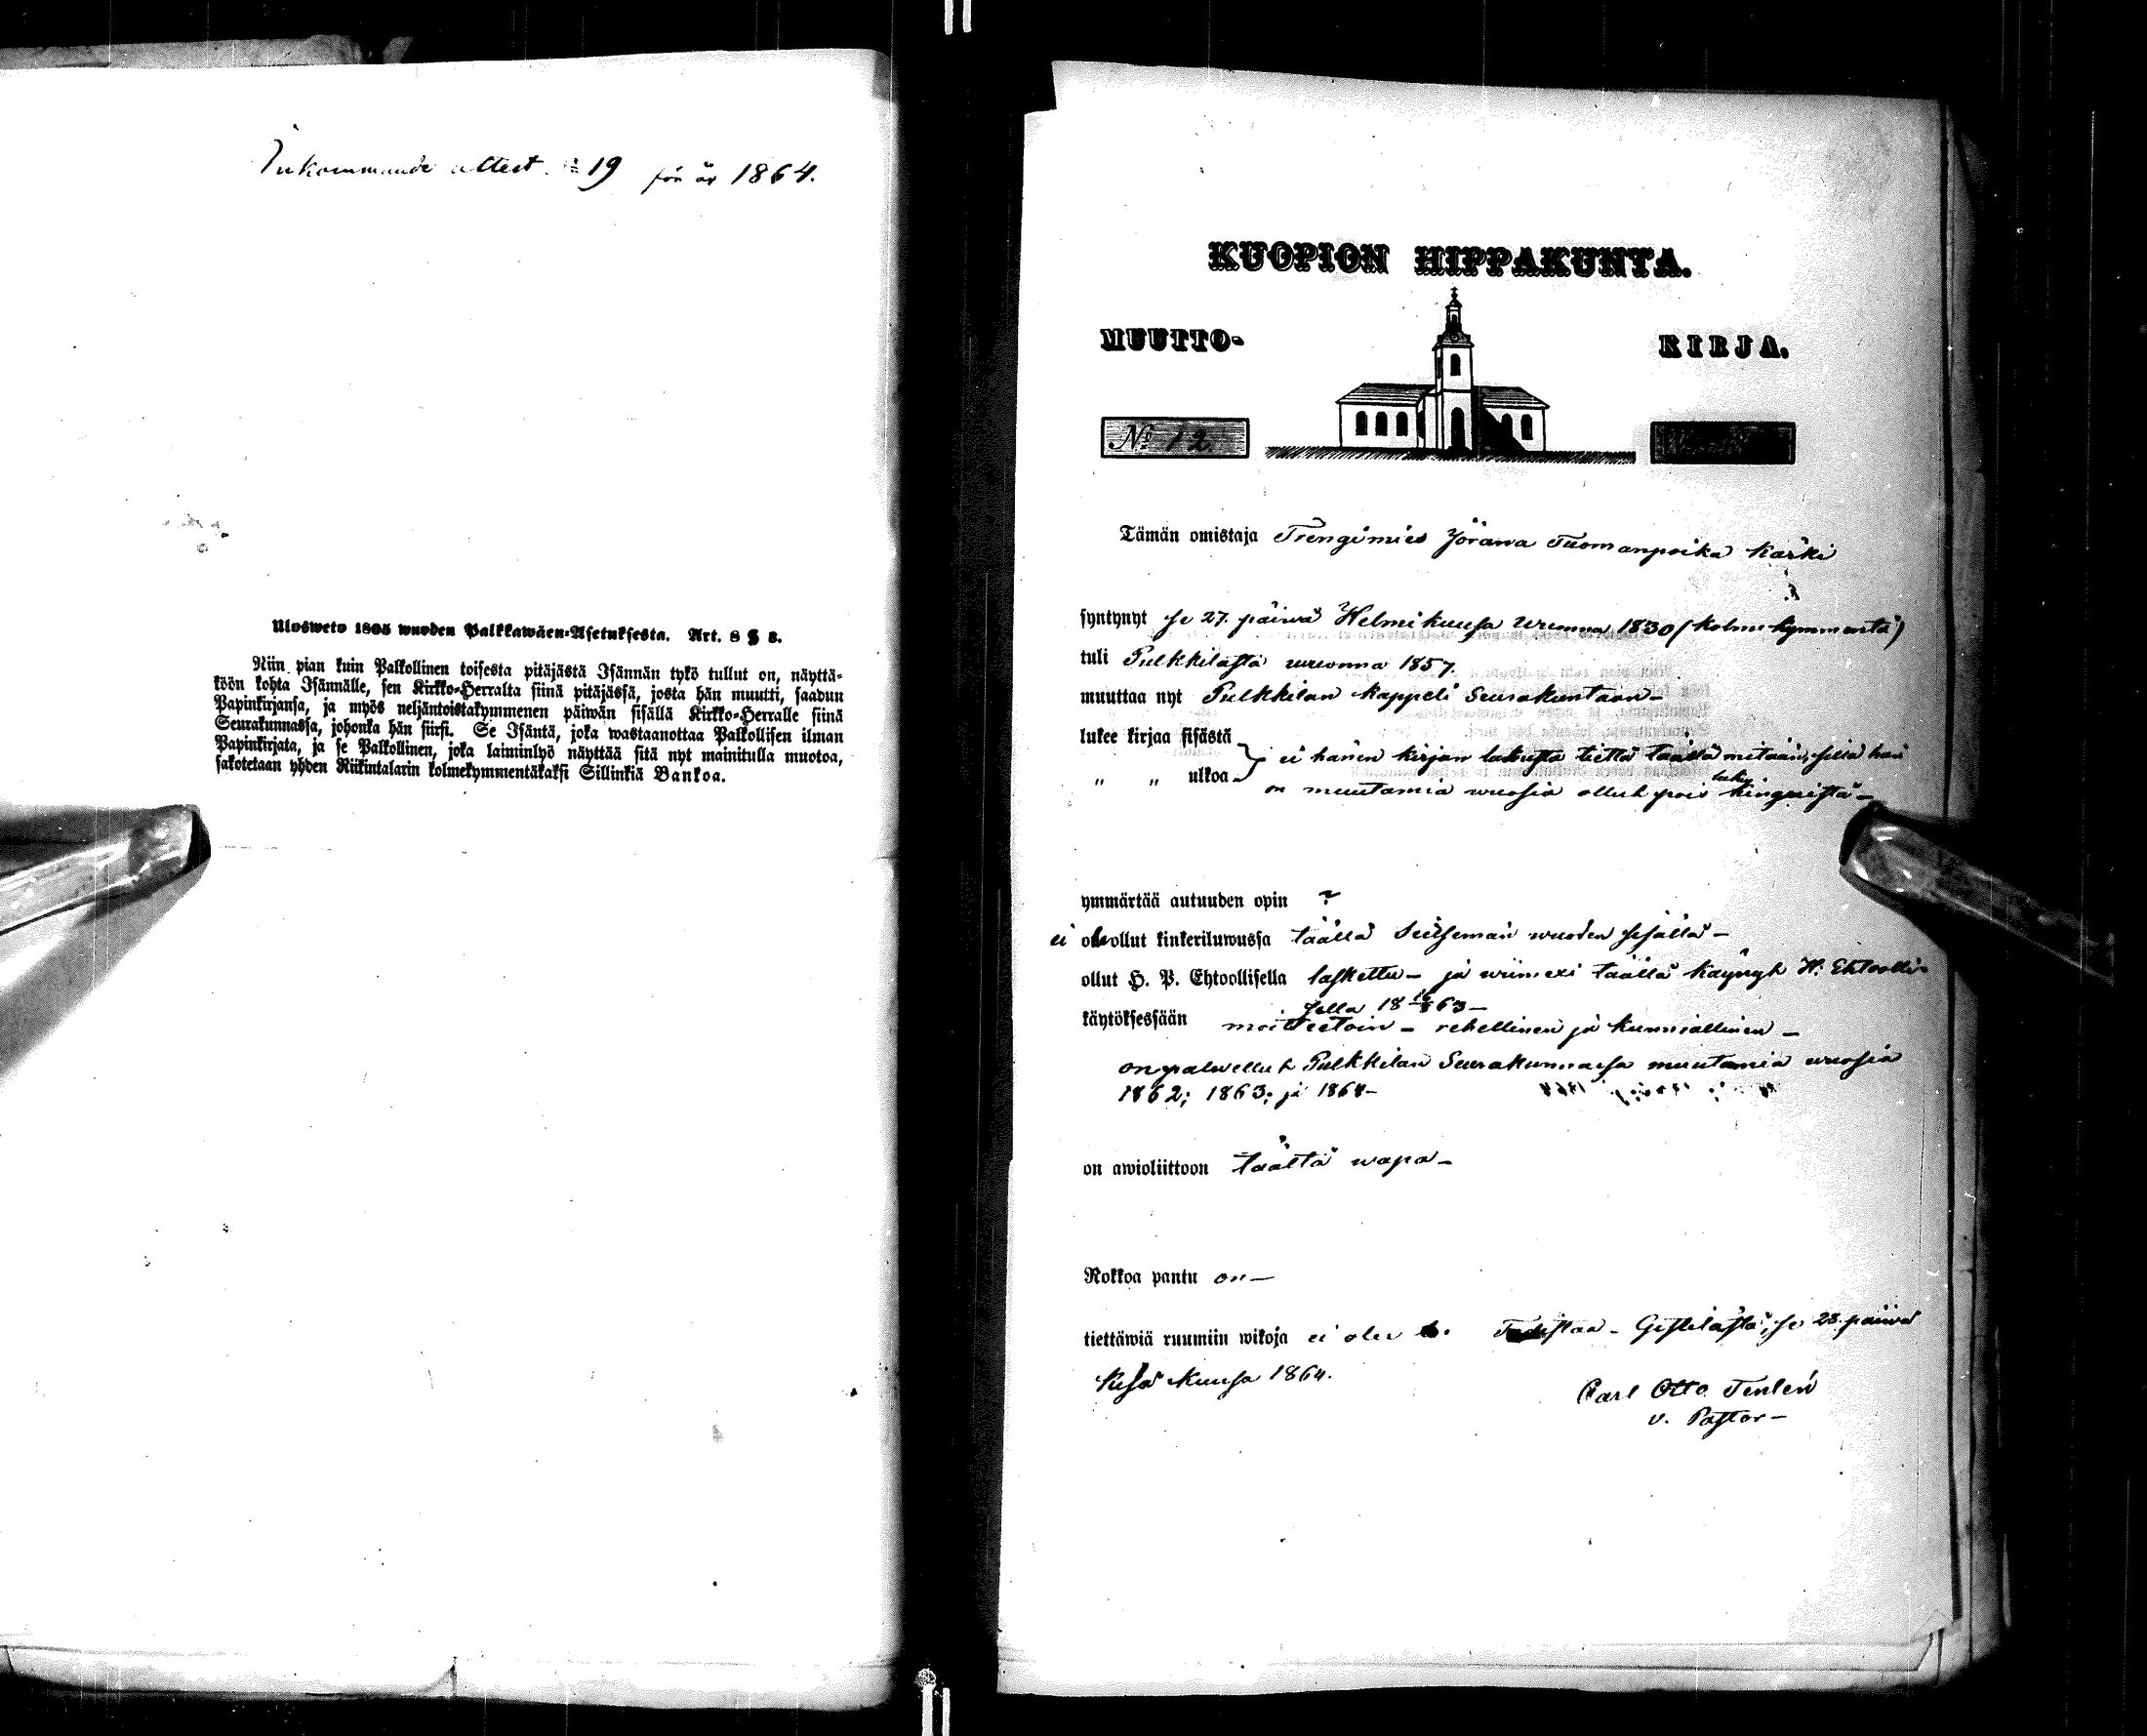 Inkommande attest. № 19 för år 1864.
Ulosweto 1805 wuoden Palkkawäen-Asetuksesta. Art. 8 § 8.
Niin pian kuin Palkollinen toisesta pitäjästä Isännän tykö tullut on, näyttä-
köön kohta Isännälle, sen Kirkko-Herralta siinä pitäjässä, josta hän muutti, saadun
Papinkirjansa, ja myös neljäntoistakymmenen päiwän sisällä Kirkko-Herralle siinä
Seurakunnassa, johonka hän siirsi. Se Isäntä, joka wastaanottaa Palkollisen ilman
Papinkirjata, ja se Palkollinen, joka laiminlyö näyttää sitä nyt mainitulla muotoa,
sakotetaan yhden Riikintalarin kolmekymmentäkaksi Sillinkiä Bankoa.
KUOPION HIPPAKUNTA.
MUUTTO- KIRJA.
№ 12
Tämän omistaja Trengimies Yörana Tuomanpoika Kärki
syntynyt se 27. päiwä Helmikuusa wuonna 1830 (kolmekymmentä)
tuli Pulkkilasta wuonna 1857.
muuttaa nyt Pulkkilan kappeli Seurakuntaan –
lukee kirjaa sisästä } ei hänen kirjan lukusta tiettä täällä mitään, sillä hän
„ „ ulkoa } on muutamia wuosia ollut pois luku kinguistä –
ymmärtää autuuden opin ?
ei ole ollut kinkeriluwussa täällä Seitsemän wuoden sisällä –
ollut H. P. Ehtoollisella laskettu – ja wiimexi täällä käynyt H: Ehtoolli-
sella 18 63 –
käytöksessään moitteetoin – rehellinen ja kunniallinen –
on palwellut Pulkkilan Seurakunnassa muutamia wuosia
1862; 1863; ja 1864 –
on awioliittoon täältä wapa –
Rokkoa pantu on –
tiettäwiä ruumiin wikoja ei ole Todistaa – Gestilästä, se 28. päiwä
Kesä kuusa 1864.
Carl Otto Tenlén
v. Pastor –